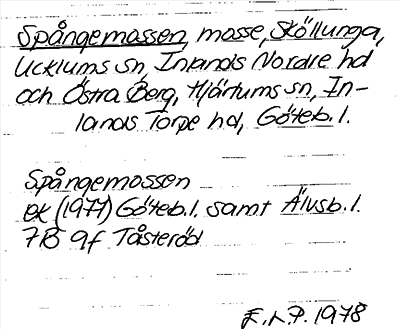 Spångemossen, mosse, Sköllunga,
Ucklums sn, Inlands Nordre hd
och Östra Berg, Hjärtums sn, In-
lands Torpe hd, Göteb. l.
Spångemossen
ek (1977) Göteb. l. samt Älvsb. l.
7B 9f Tåsteröd
E.L.P. 1978